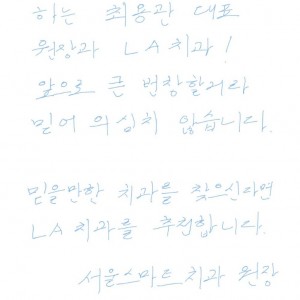 하는 최용관 대표
원장과 LA치과!
앞으로 큰 번창할거라
믿어 의심치 않습니다.
믿을만한 치과를 찾으신다면
LA치과를 추천합니다.
서울스마트치과 원장